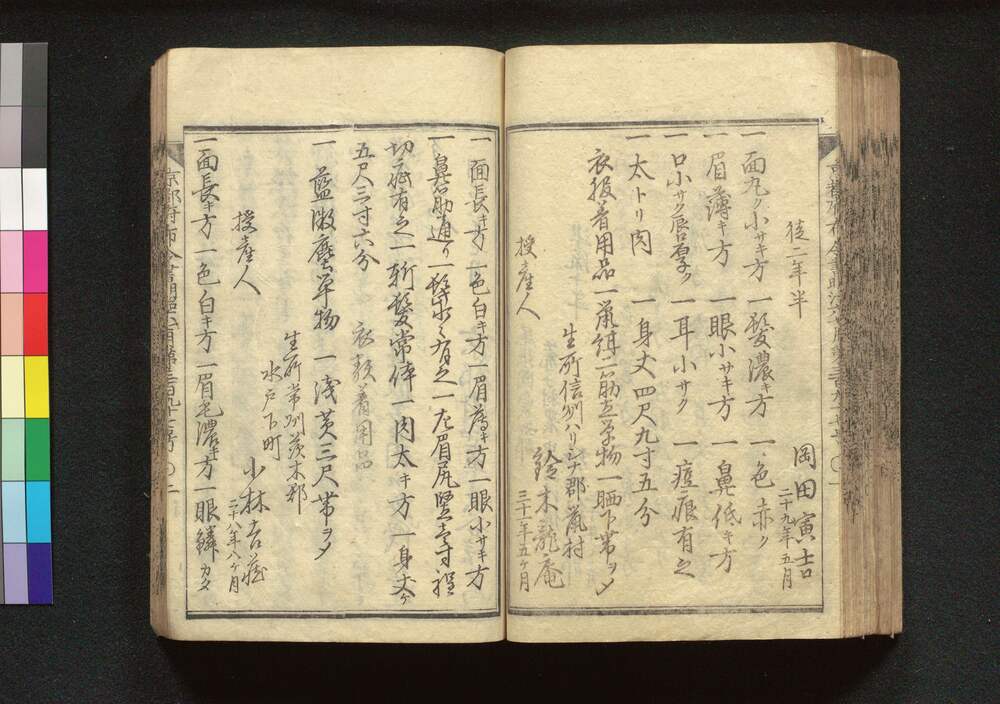 徒二年半
岡田寅吉
二十九年五月
一面丸ク小サキ方 一髪濃キ方 一色赤ク
一眉薄キ方 一眼小サキ方 一鼻低キ方
一口小サク唇厚ク 一耳小サク 一痘痕有之
一太トリ肉 一身丈四尺九寸五分
衣服着用品 一鼠絣二筋立単物 一晒下帯ヲメ
生所信州ハリシナ郡鼠村
授産人
鈴木龍庵
三十年五ヶ月
一面長キ方 一色白キ方 一眉薄キ方 一眼小サキ方
一鼻筋通リ 一髭少々有之 一左眉尻竪壱寸程
切疵有之 一斬髪常体 一肉太キ方 一身丈ケ
五尺三寸六分 衣類着用品
一藍微塵単物 一浅黄三尺帯ヲメ
生所常州茨木郡
水戸下町
授産人
小林吉蔵
二十八年八ヶ月
一面長キ方 一色白キ方 一眉毛濃キ方 一眼鱗カタ
京都府布令書明治六年第三百九十七号 〇 二